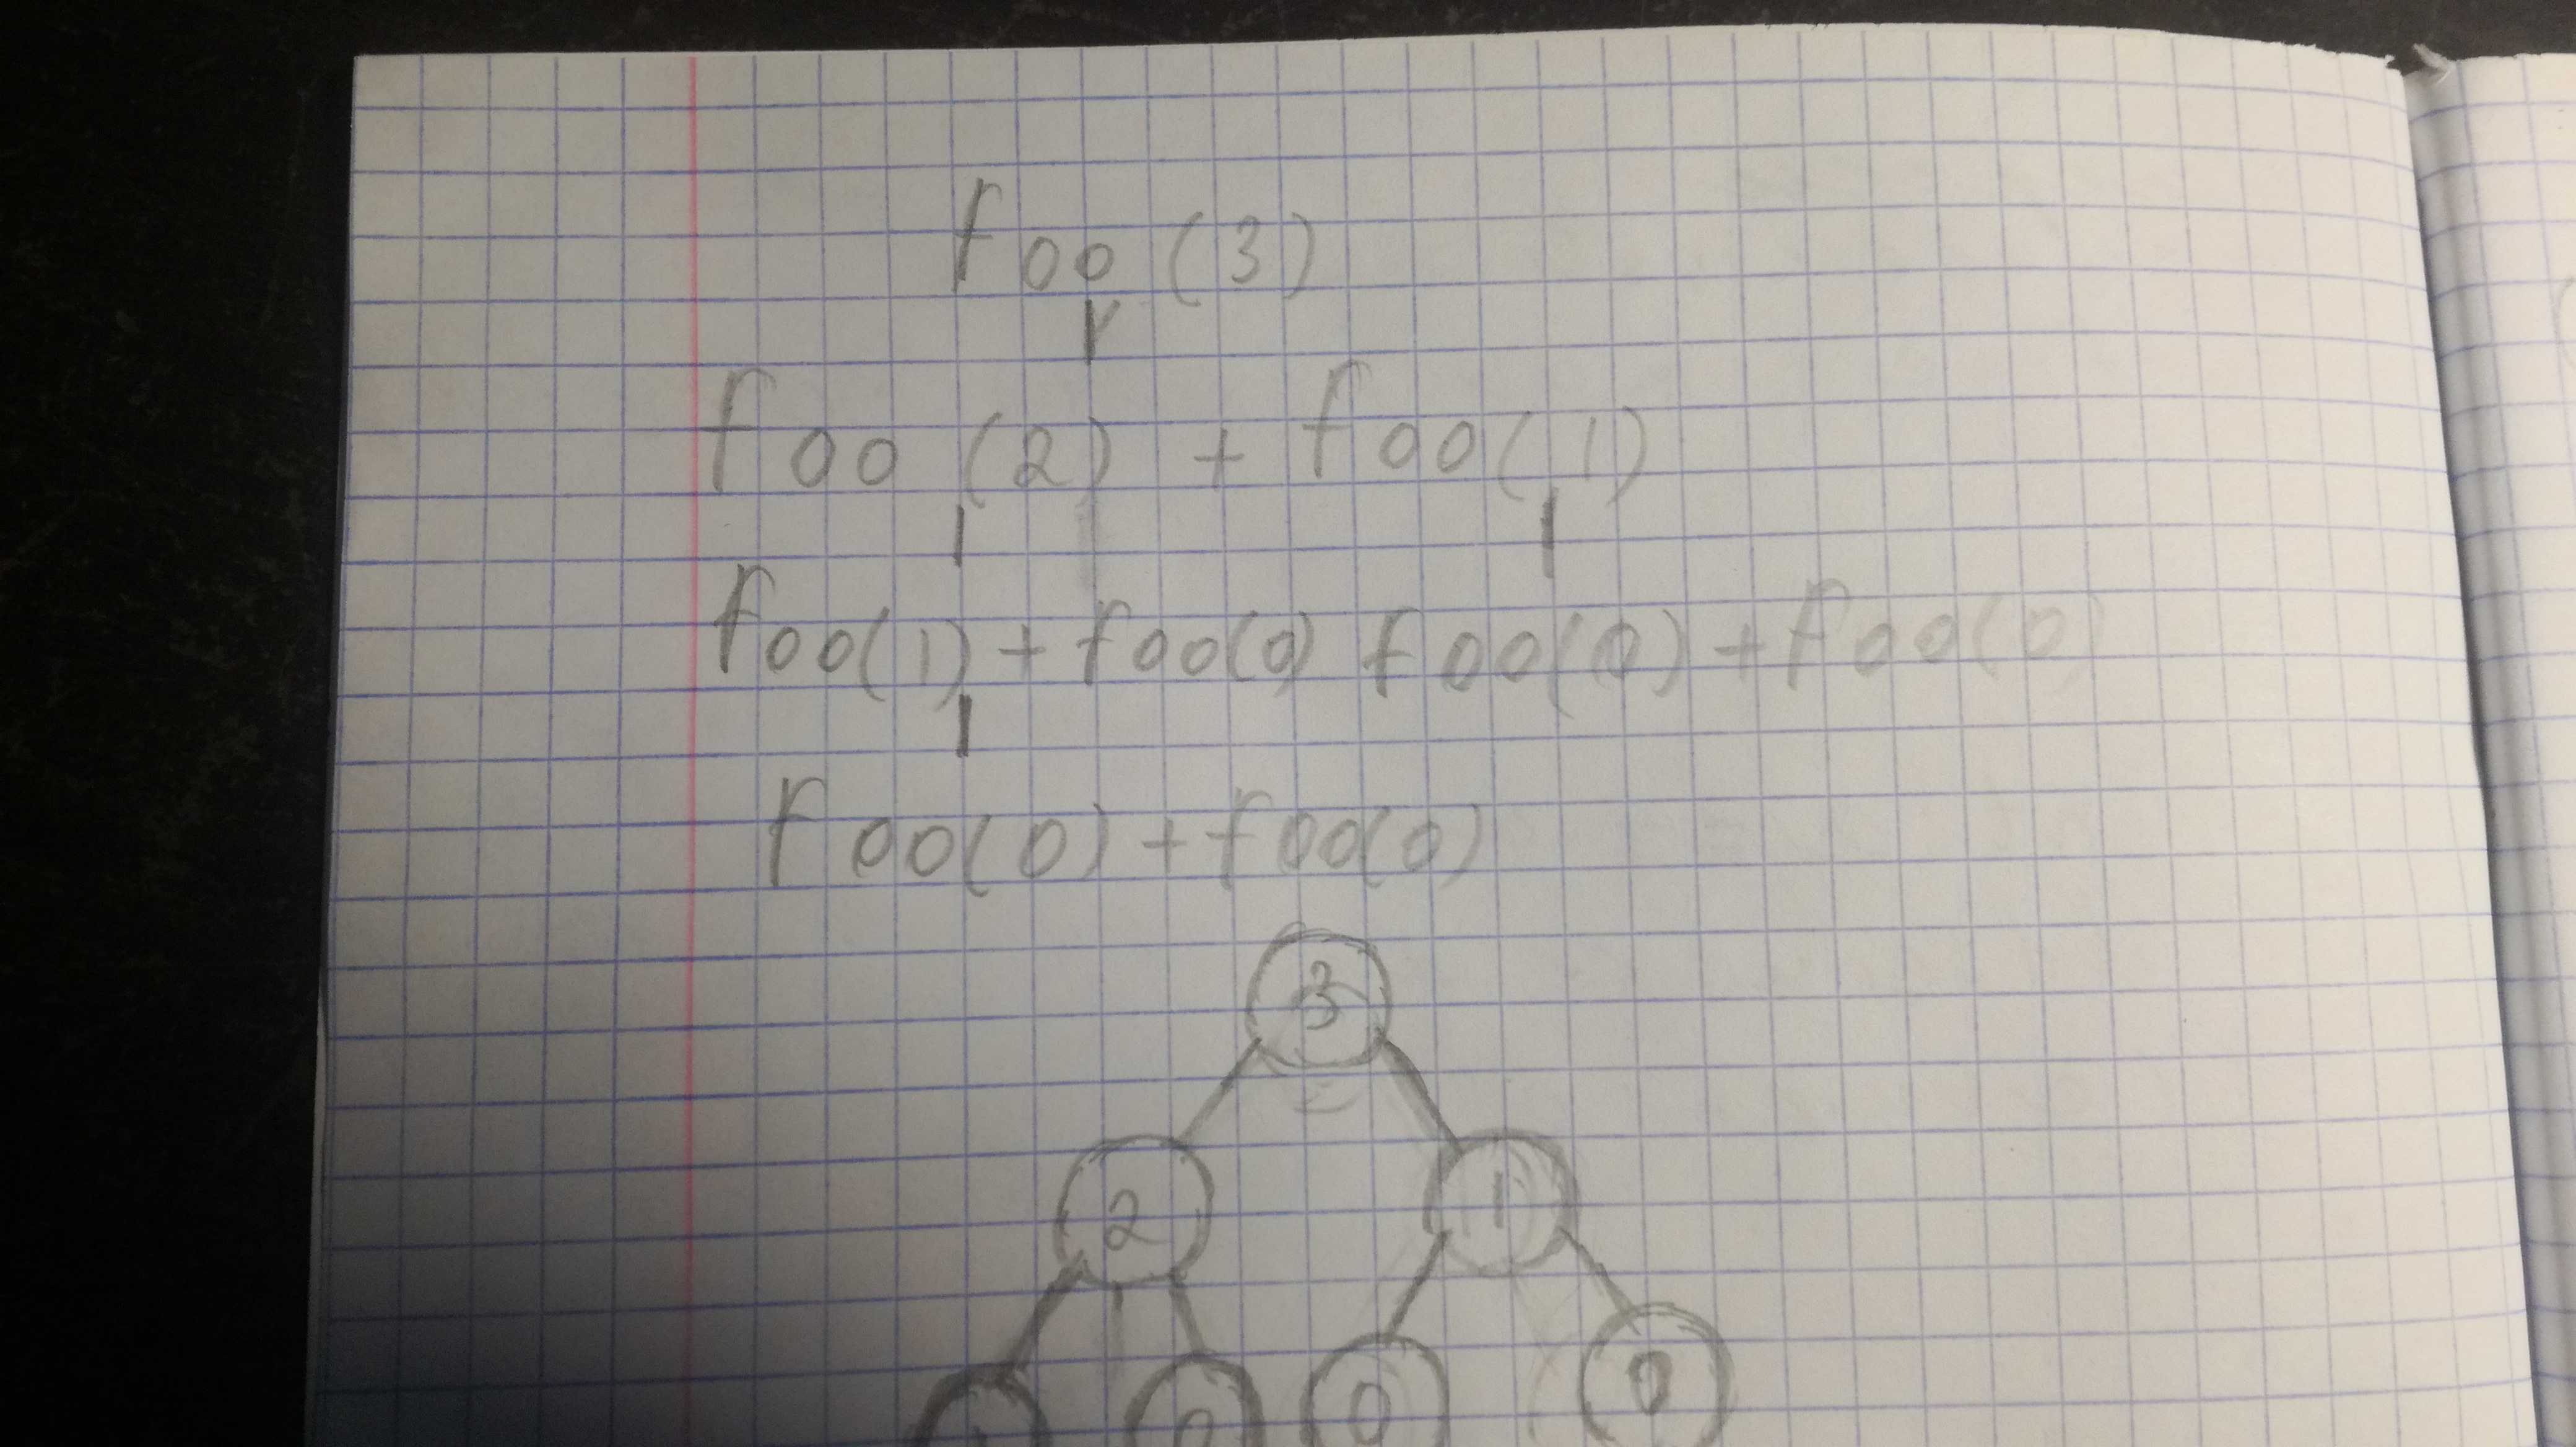 foo (3)
foo (2) + foo(1)
foo(1) + foo(0) foo(0) + foo(0)
foo(0) + foo(0)
3
2 1
1 0 0 0